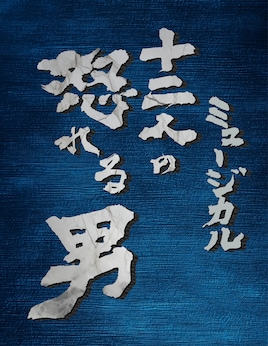 ミュージカル
十二人の
恐れる
男